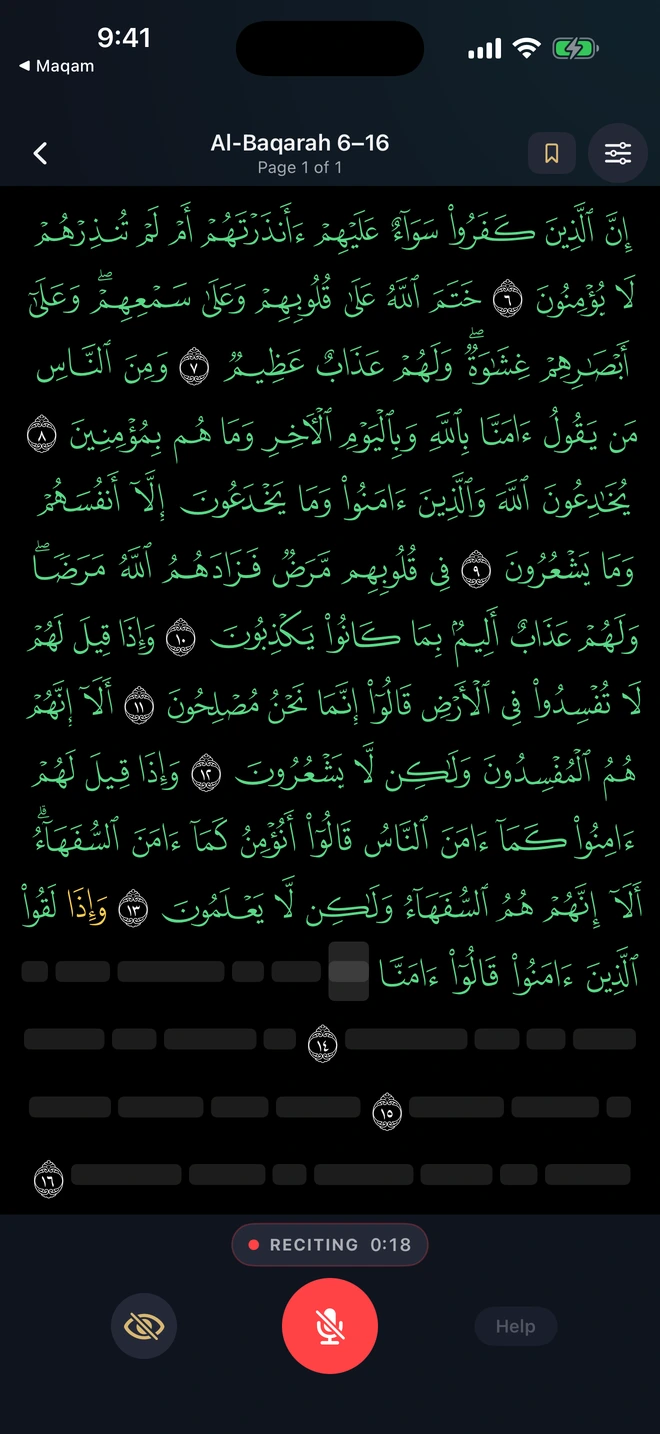 9:41
◀ Maqam
Al-Baqarah 6–16
Page 1 of 1
إِنَّ ٱلَّذِينَ كَفَرُوا۟ سَوَآءٌ عَلَيْهِمْ ءَأَنذَرْتَهُمْ أَمْ لَمْ تُنذِرْهُمْ
لَا يُؤْمِنُونَ ٦ خَتَمَ ٱللَّهُ عَلَىٰ قُلُوبِهِمْ وَعَلَىٰ سَمْعِهِمْ ۖ وَعَلَىٰٓ
أَبْصَـٰرِهِمْ غِشَـٰوَةٌ ۖ وَلَهُمْ عَذَابٌ عَظِيمٌ ٧ وَمِنَ ٱلنَّاسِ
مَن يَقُولُ ءَامَنَّا بِٱللَّهِ وَبِٱلْيَوْمِ ٱلْـَٔاخِرِ وَمَا هُم بِمُؤْمِنِينَ ٨
يُخَـٰدِعُونَ ٱللَّهَ وَٱلَّذِينَ ءَامَنُوا۟ وَمَا يَخْدَعُونَ إِلَّآ أَنفُسَهُمْ
وَمَا يَشْعُرُونَ ٩ فِى قُلُوبِهِم مَّرَضٌ فَزَادَهُمُ ٱللَّهُ مَرَضًا ۖ
وَلَهُمْ عَذَابٌ أَلِيمٌۢ بِمَا كَانُوا۟ يَكْذِبُونَ ١٠ وَإِذَا قِيلَ لَهُمْ
لَا تُفْسِدُوا۟ فِى ٱلْأَرْضِ قَالُوٓا۟ إِنَّمَا نَحْنُ مُصْلِحُونَ ١١ أَلَآ إِنَّهُمْ
هُمُ ٱلْمُفْسِدُونَ وَلَـٰكِن لَّا يَشْعُرُونَ ١٢ وَإِذَا قِيلَ لَهُمْ
ءَامِنُوا۟ كَمَآ ءَامَنَ ٱلنَّاسُ قَالُوٓا۟ أَنُؤْمِنُ كَمَآ ءَامَنَ ٱلسُّفَهَآءُ ۗ
أَلَآ إِنَّهُمْ هُمُ ٱلسُّفَهَآءُ وَلَـٰكِن لَّا يَعْلَمُونَ ١٣ وَإِذَا لَقُوا۟
ٱلَّذِينَ ءَامَنُوا۟ قَالُوٓا۟ ءَامَنَّا
١٤
١٥
١٦
RECITING 0:18
Help